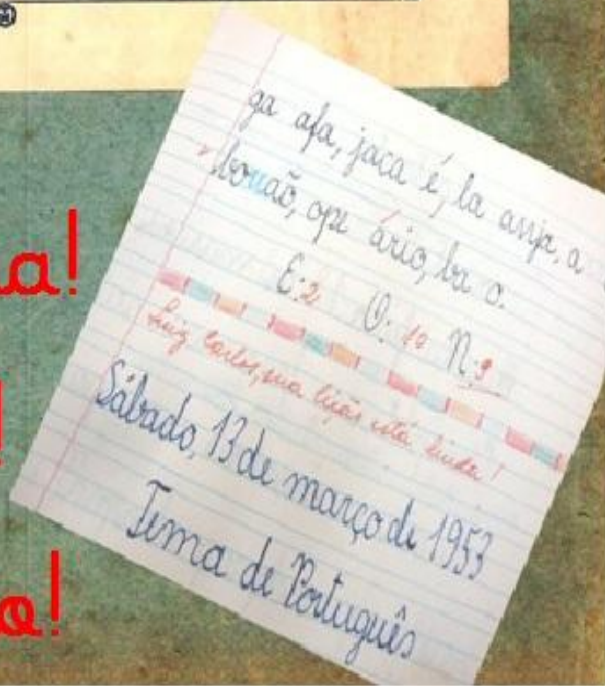 a!
!
o!
ga afa, jaca é, la anja, a
ão, ope ário, ba o.
E:2 O: 10 N:9
Luiz Carlos, sua lição está linda!
Sábado, 13 de março de 1953
Tema de Português